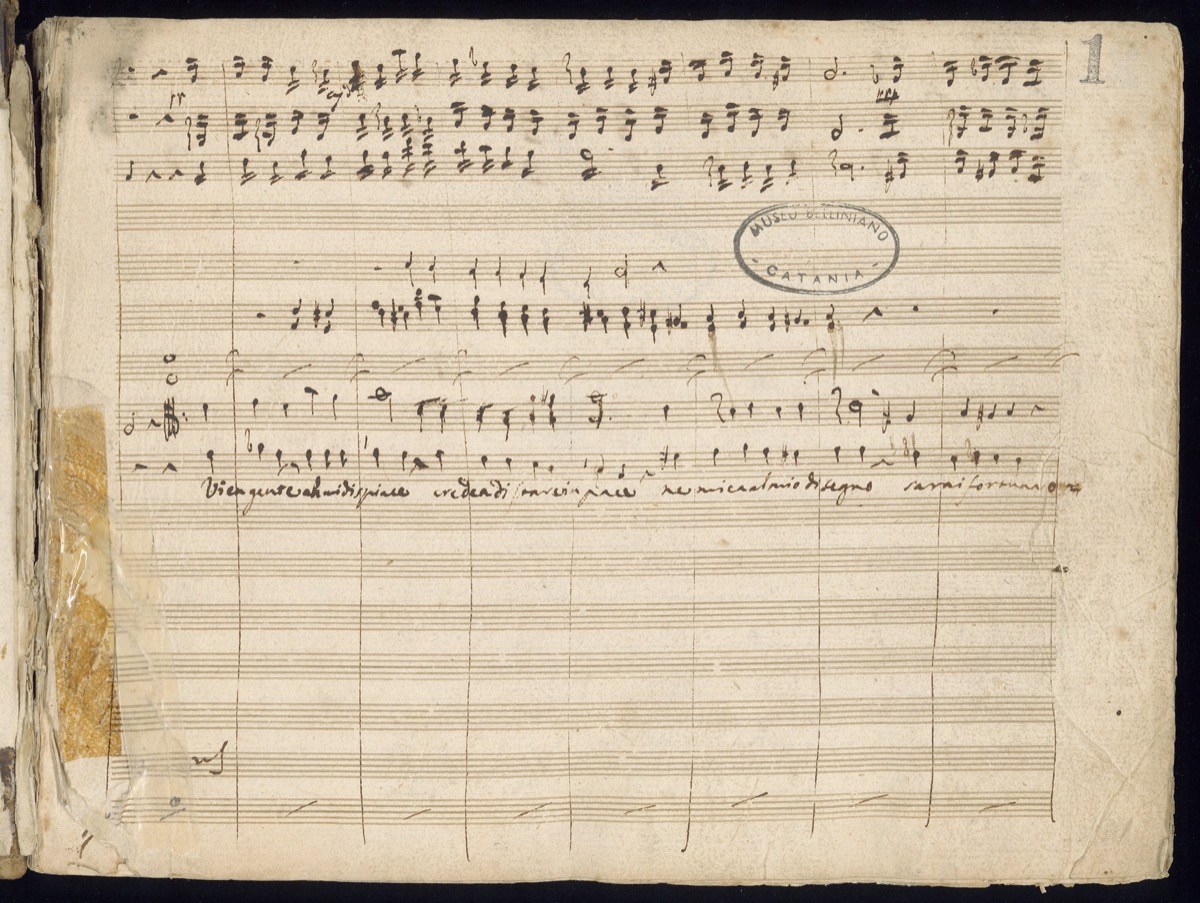 1
pp
MUSEO BELLINIANO
- CATANIA -
Vien gente ahi mi dispiace credea di in pace nemica al mio disegno sarai fortuna